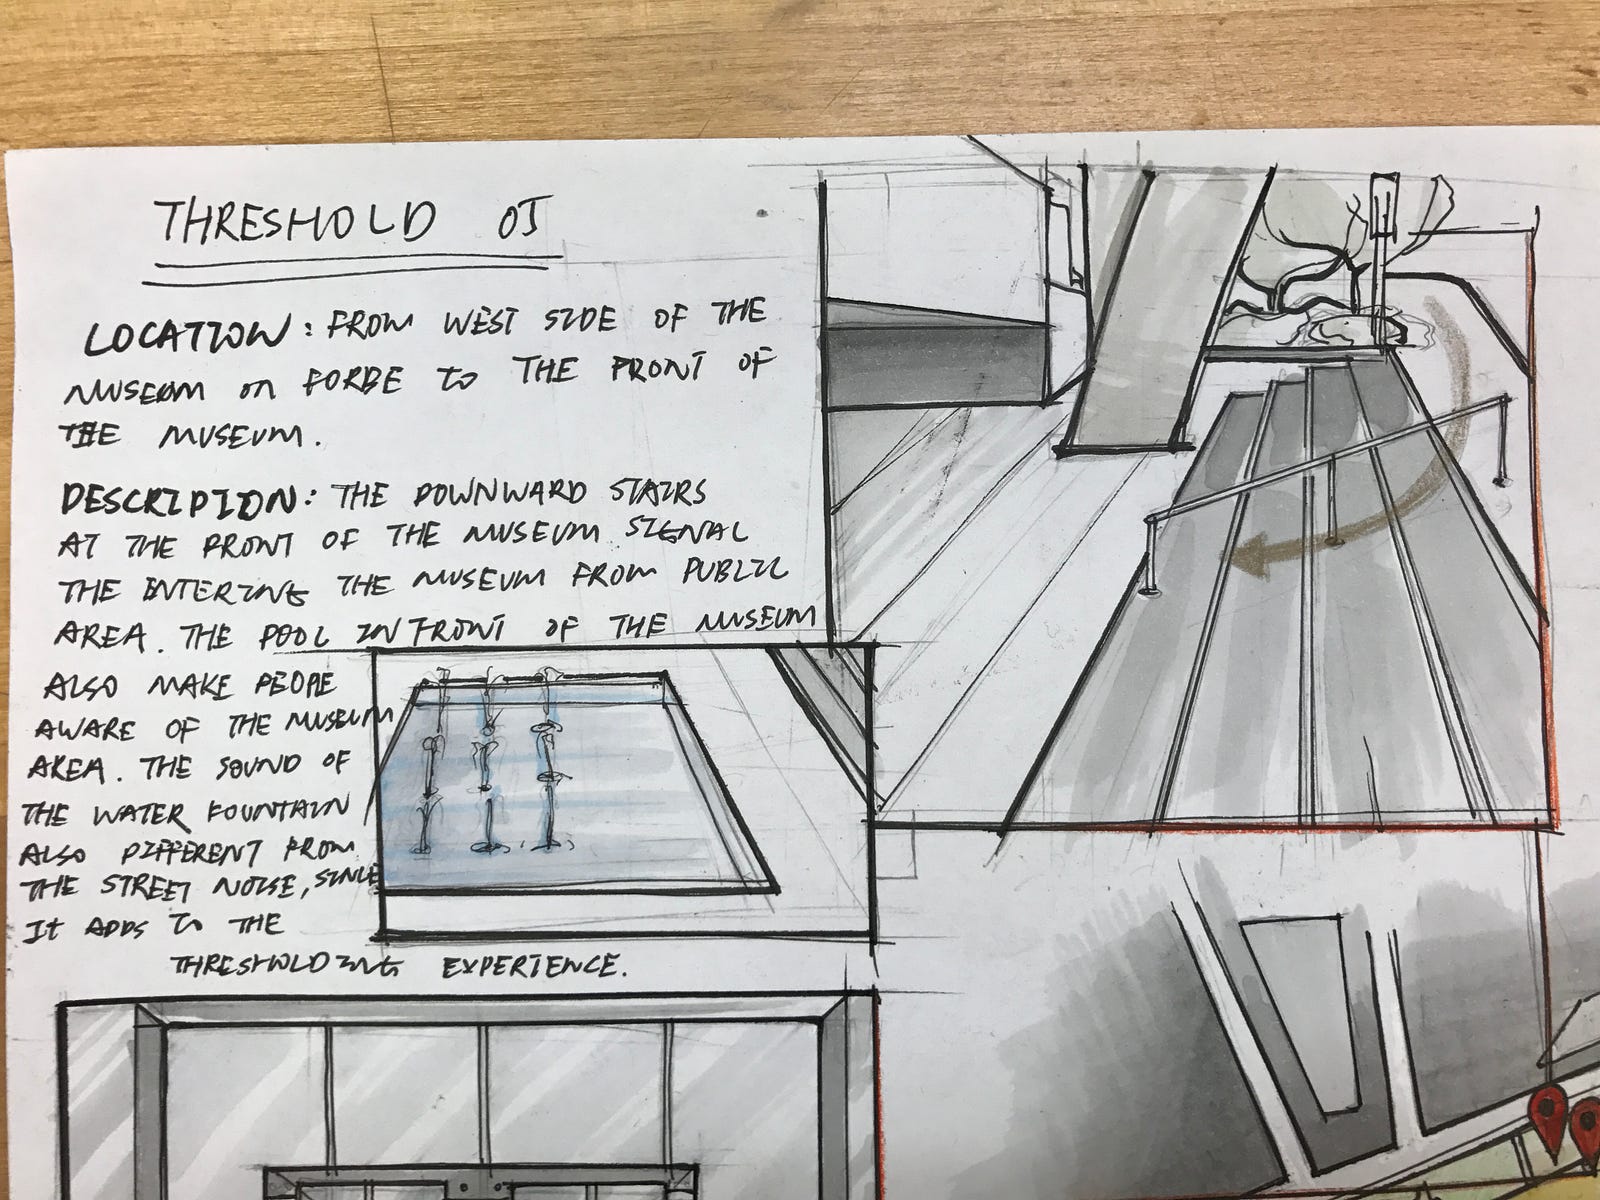 THRESHOLD 05
LOCATION: FROM WEST SIDE OF THE
MUSEUM on FORBE to THE FRONT OF
THE MUSEUM.
DESCRIPTION: THE DOWNWARD STAIRS
AT THE FRONT OF THE MUSEUM SIGNAL
THE ENTERING THE MUSEUM FROM PUBLIC
AREA. THE POOL IN FRONT OF THE MUSEUM
ALSO MAKE PEOPE
AWARE OF THE MUSEUM
AREA. THE SOUND OF
THE WATER FOUNTAIN
ALSO DIFFERENT FROM
THE STREET NOISE, SINCE
It ADDS TO THE
THRESHOLDING EXPERIENCE.